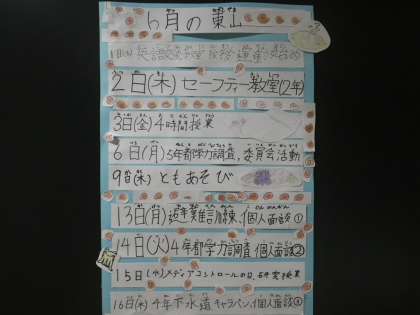 6月の
2日(木) セーフティー教室(2年)
3日(金) 4時間授業
6日(月) 5年都学力調査、委員会活動
9日(木) ともあそび
13日(月) 避難訓練、個人面談①
14日(火) 4年都学力調査、個人面談②
15日(水) メディアコントロールの日、5時
16日(木) 4年下水道キャラバン、個人面談